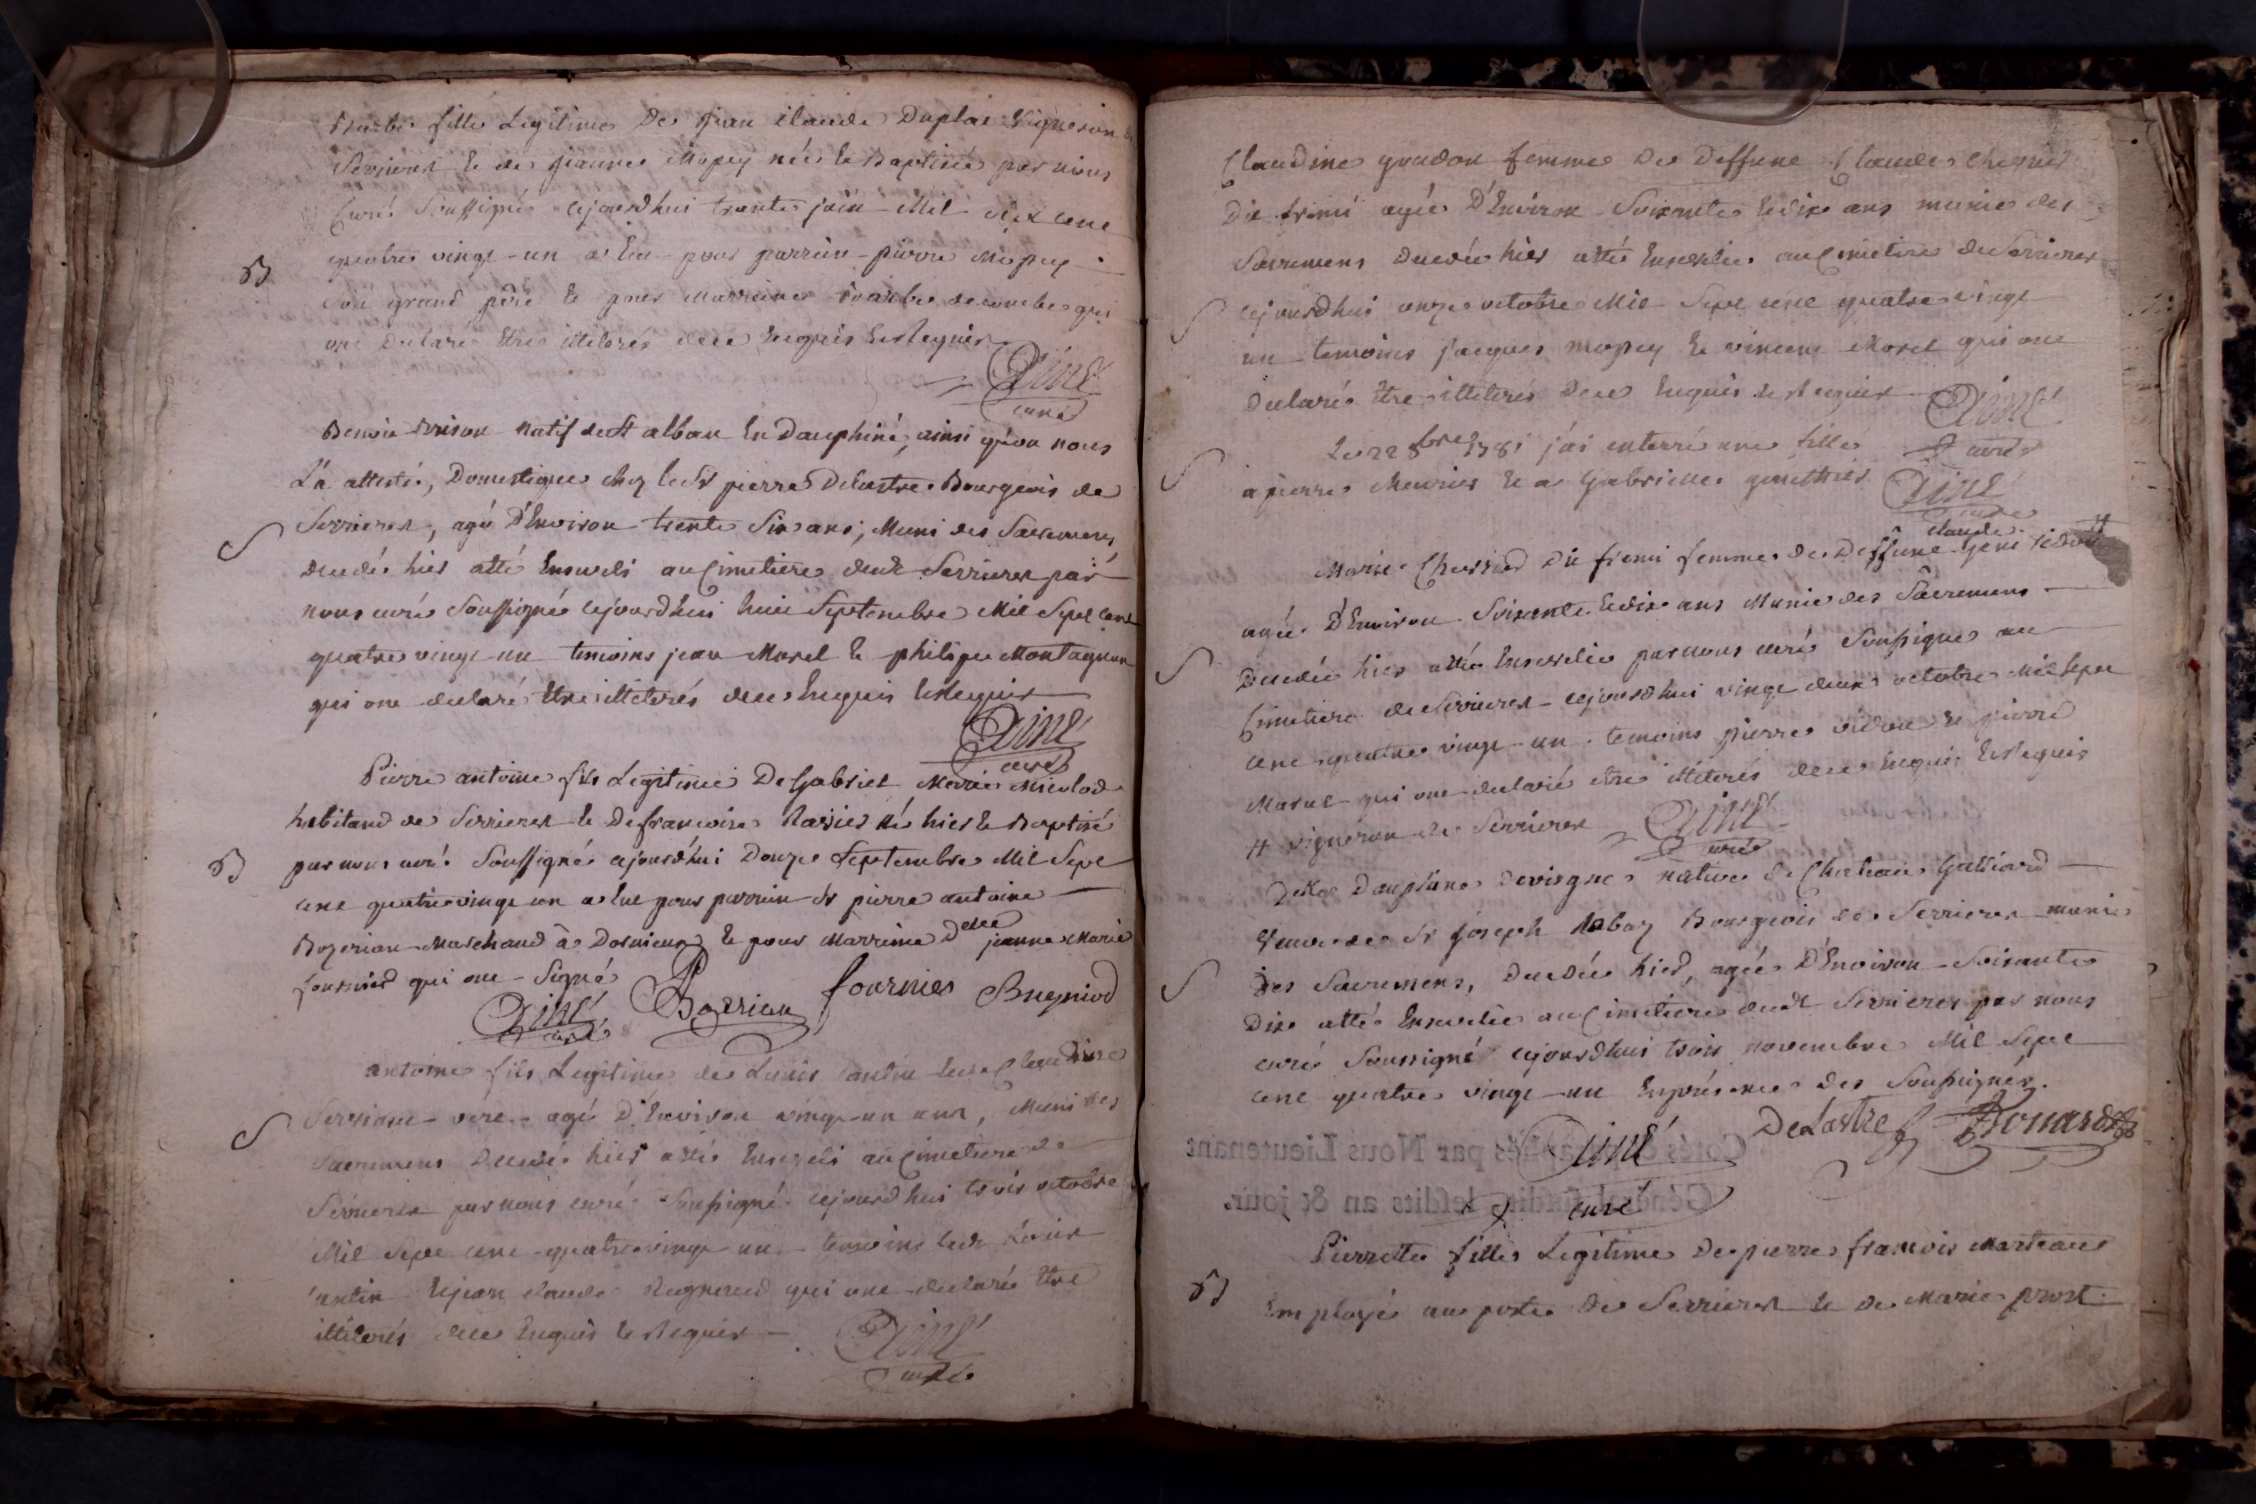 Barbe fille Legitime De jean claude Duplat Vigneron de
Serrieres Et de jeanne Mopey née Et Baptisée par nous
Curé Soussigné cejourdhui trente juin Mil Sept cent
quatre vingt un a Eu pour parrain pierre Mopey
B
Son grand pere Et pour Marraine barbe decombe qui
ont Declaré Etre illiterés dece Enquis Et Requis
Aimé
curé
Benoit Brison Natif de St alban En Dauphiné, ainsi qu'on nous
L'a attesté, Domestique chez le Sr pierre Delastre Bourgeois de
Serrieres, agé D'Environ trente Six ans, Muni des Sacremens
S
decedé hier atté Enseveli au Cimetiere dudt Serrieres par
nous curé Soussigné cejourdhui huit Septembre Mil Sept cent
quatre vingt un temoins jean Morel Et philipe Montagnon
qui ont declaré Etre illiterés dece Enquis Et Requis
Aimé
curé
Pierre antoine fils Legitime De Gabriel Marie Micolod
habitand de Serrieres Et De francoise Né hier Et Baptisé
B
par nous curé Soussigné cejourdhui Douze Septembre Mil Sept
cent quatre vingt un a Eut pour parrain Sr pierre antoine
Bozerian Marchand à Et pour Marraine Dlle jeanne Marie
fournier qui ont Signé
Aimé curé Bozerian fournier Bugniod
antoine fils Legitime de Louis antin Et de Claudine
Serrieres agé D'Environ vingt un ans, Muni des
S
Sacremens Decedé hier atté Enseveli au Cimetiere de
Serrieres par nous curé Soussigné cejourdhui trois octobre
Mil Sept cent quatre vingt un temoins ledt Louis
antin Et jean claude qui ont declaré Etre
illiterés dece Enquis Et Requis
Aimé
curé
Claudine femme De Deffunt Claude
Dit fremi agée D'Environ Soixante Et dix ans munie des
Sacremens Decedée hier atté Ensevelie au Cimetiere de Serrieres
S
cejourdhui onze octobre Mil Sept cent quatre vingt
un temoins jacques mopey Et vincent Morel qui ont
Declaré Etre illiterés Dece Enquis Et Requis
Aimé
curé
Le 22 8bre 1781 j'ai enterré une fille
S
a pierre Meunier Et a Gabrielle
Aimé
curé
claude
Marie Dit fremi femme de Deffunt #
agée D'Environ Soixante Et dix ans Munie des Sacremens
S
Decedée hier atté Ensevelie par nous curé Soussigné au
Cimetiere de Serrieres cejourdhui vingt deux octobre Mil Sept
cent quatre vingt un temoins pierre Et pierre
Morel qui ont declaré etre illiterés dece Enquis Et Requis
# vigneron de Serrieres
Aimé
curé
Delle Dauphine native De Chateau Galliard
Veuve de Sr Joseph Bourgeois de Serrieres munie
S
Des Sacremens, Decedée hier, agée D'Environ Soixante
Dix atté Ensevelie au Cimetiere dudt Serrieres par nous
curé Soussigné cejourdhui trois novembre Mil Sept
cent quatre vingt un En présence des Soussignés.
Aimé Delastre Bonard
Cotés & paraphés par Nous Lieutenant
Général susdit, lesdits an & jour.
curé
Pierrette fille Legitime De pierre francois Marteau
B
Employé au poste De Serrieres Et de Marie prost